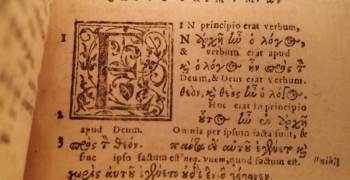 1 E IN principio erat verbum,
Ν ἀρχῇ ἦν ὁ λόγος,
& verbum erat apud
καὶ ὁ λόγος ἦν πρὸς τὸν
Deum, & Deus erat verbum.
θεὸν, καὶ θεὸς ἦν ὁ λόγος.
Hoc erat in principio
2 οὗτος ἦν ἐν ἀρχῇ
apud Deum. Omnia per ipsum facta sunt, &
3 πρὸς τὸν θεόν. πάντα δι' αὐτοῦ ἐγένετο καὶ
sine ipso factum est unum, quod factum est. "nihil
χωρὶς αὐτοῦ ἐγένετο οὐδὲ ἓν ὃ γέγονεν.